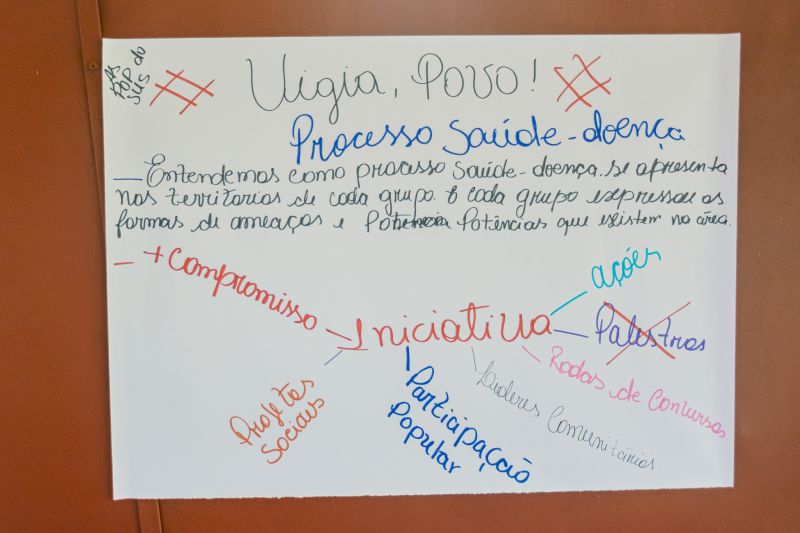 AS
POP do
SUS
# Vigia, Povo! #
Processo Saúde-doença
— Entendemos como processo Saúde-doença. se apresenta
nos territorios de cada grupo. E cada grupo expressou as
formas de ameaças e Potências que existem na área.
- + Compromisso
Iniciativa
Ações
Palestras
Rodas de Conversas
Lideres Comunitários
Participação
Popular
Projetos
Sociais